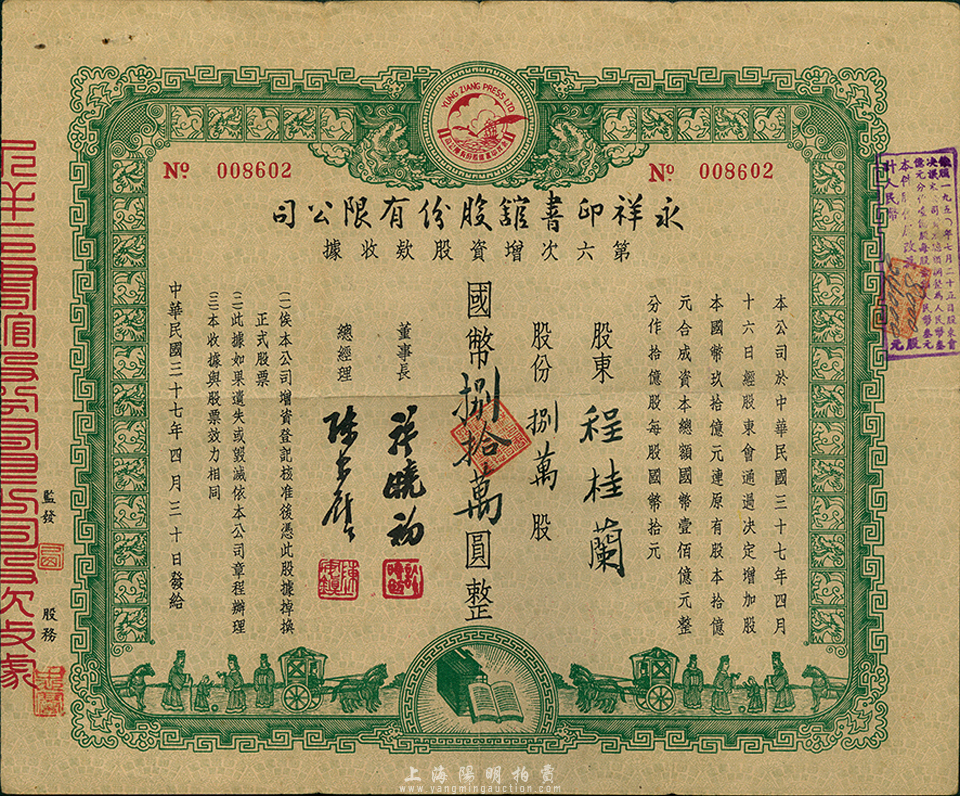 YUNG ZIANG PRESS, LTD
No 008602
No 008602
永祥印書館股份有限公司
第六次增資股款收據
本公司於中華民國三十七年四月
十六日經股東會通過决定增加股
本國幣玖拾億元連原有股本拾億
元合成資本總額國幣壹佰億元整
分作拾億股每股國幣拾元
股東 程桂蘭
股份 捌萬 股
國幣捌拾萬圓整
董事長
總經理
(一)俟本公司增資登記核准後憑此股據掉換
正式股票
(二)此據如果遺失或毀滅依本公司章程辦理
(三)本收據與股票效力相同
中華民國三十七年四月三十日發給
監發
股務
上海陽明拍賣
www.yangmingauction.com